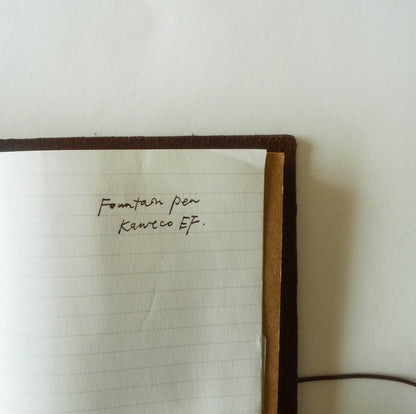 Fountain pen
Kaweco EF.